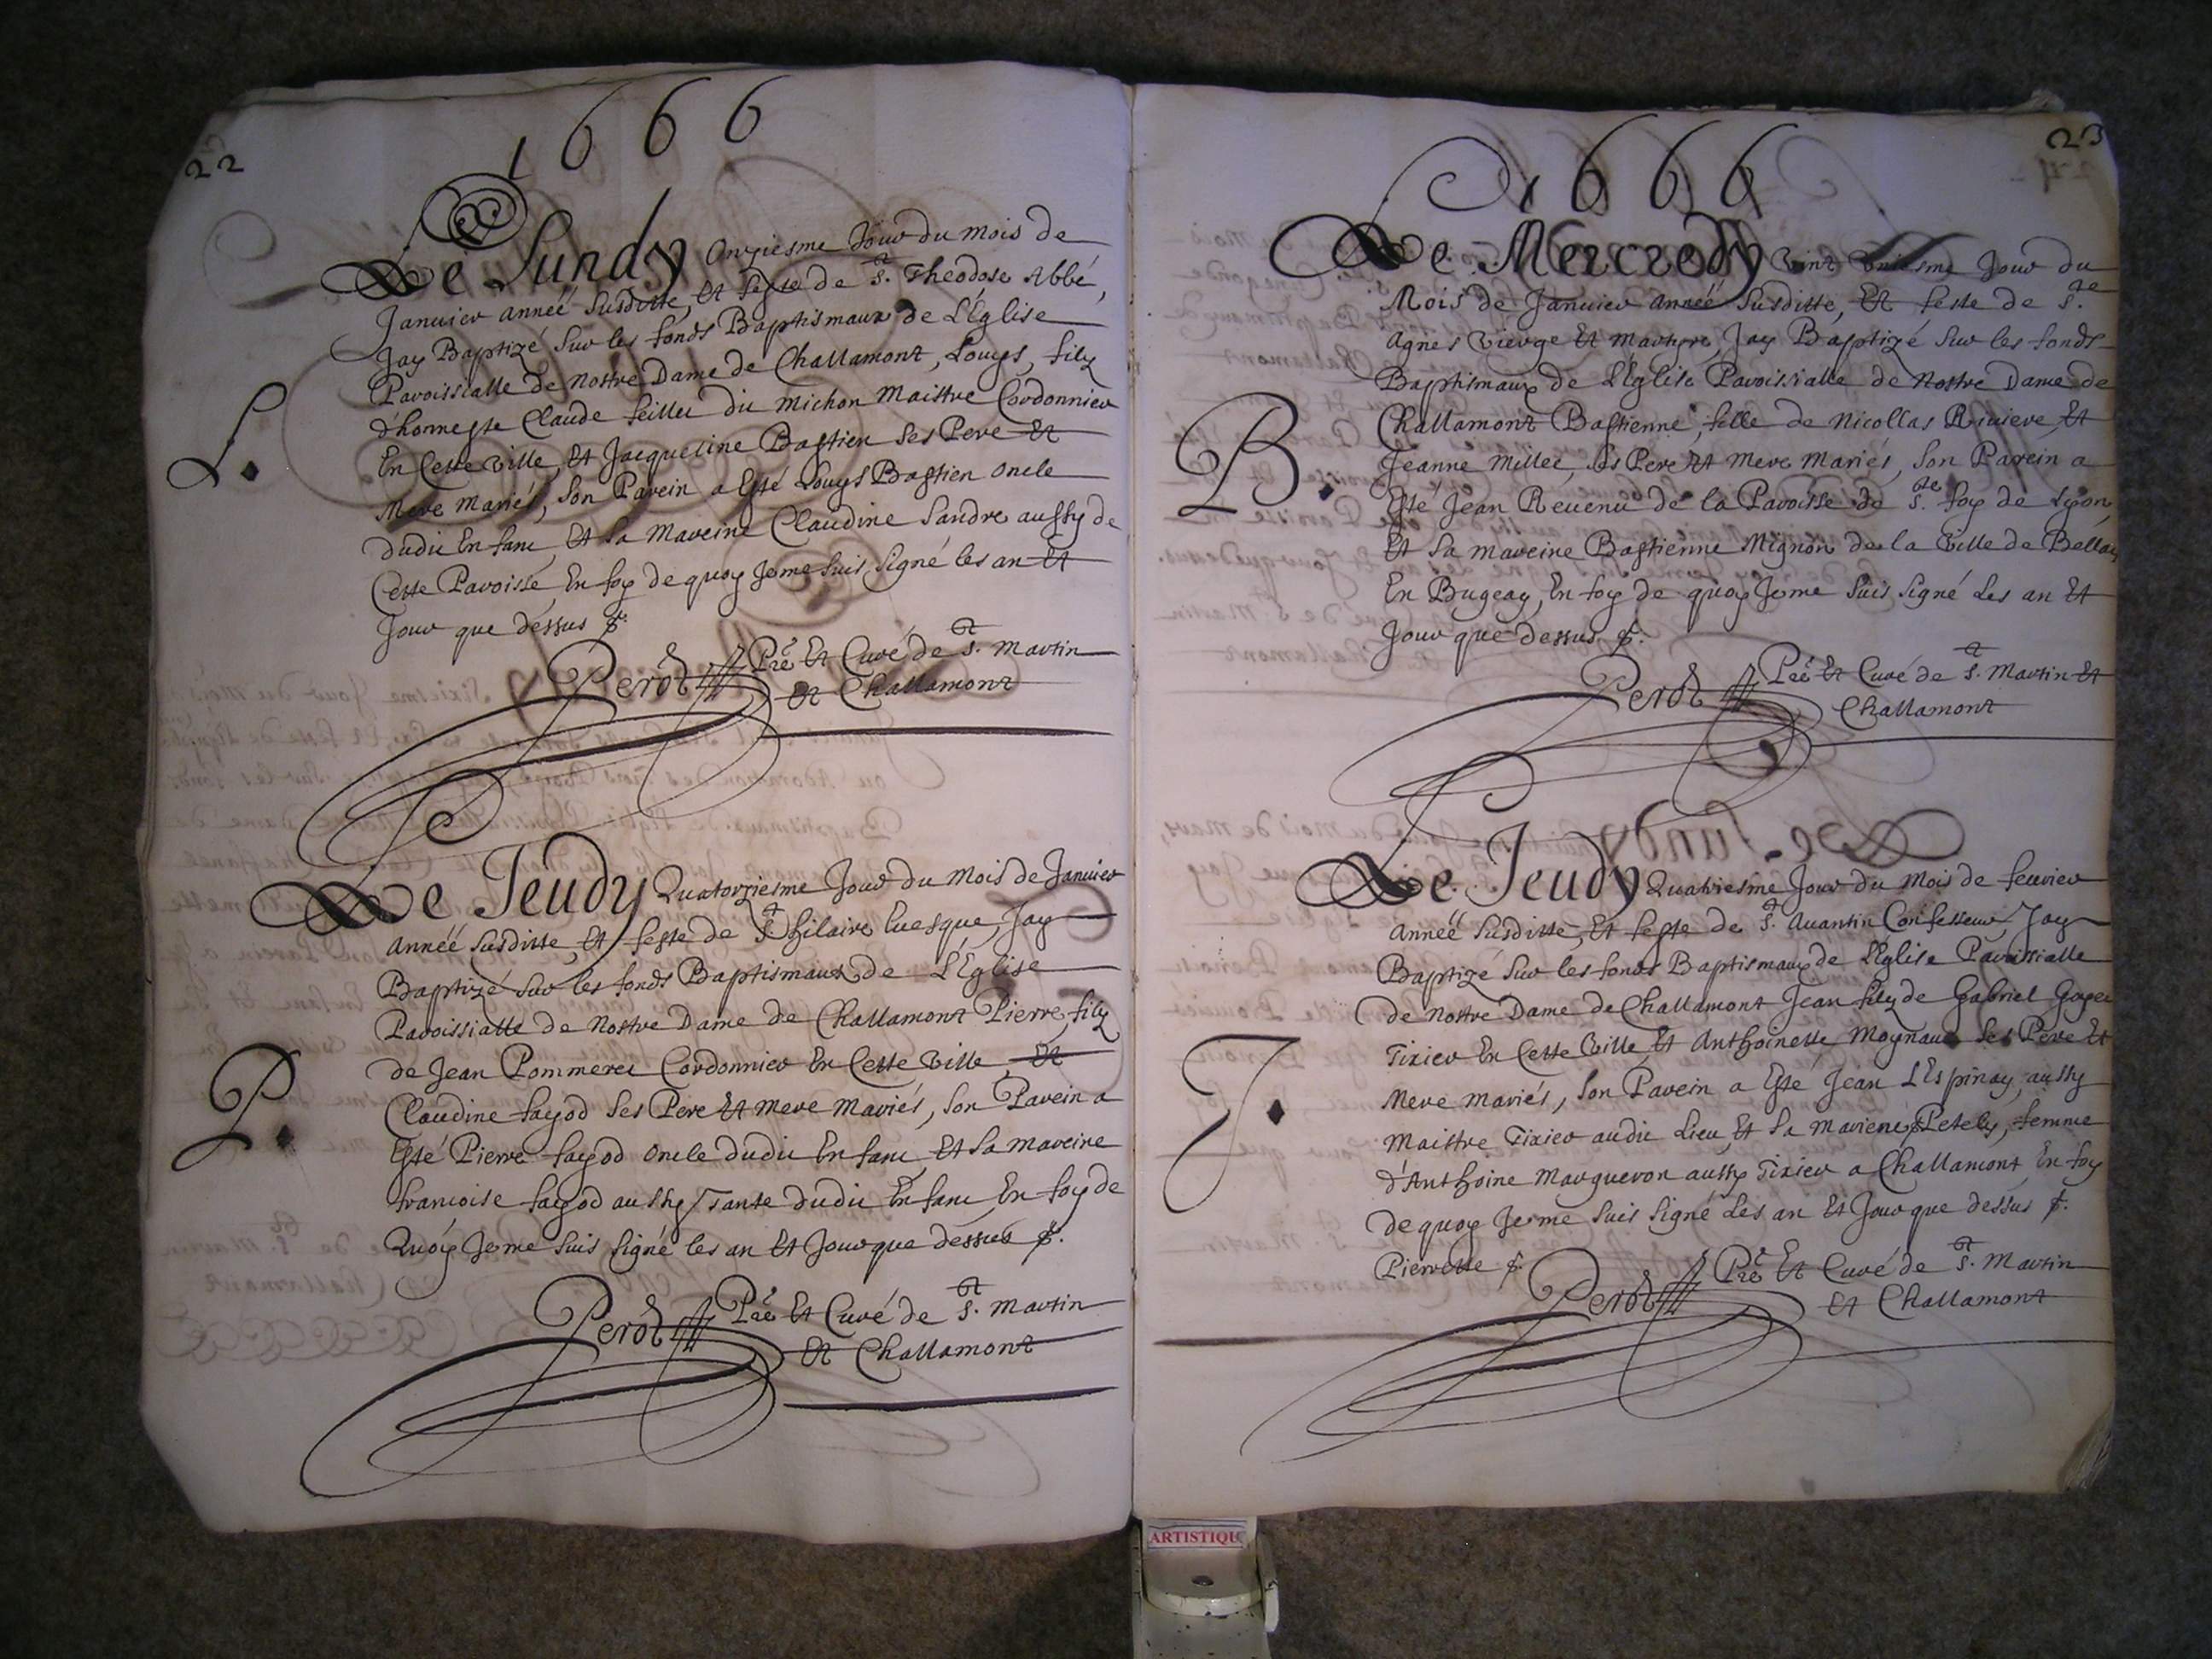 22
1666
Le Lundy Onziesme Jour du mois de
Januier année Susditte, Et feste de St. Theodose Abbé,
Jay Baptizé Sur les fonds Baptismaux de L'Eglise
Paroissialle de Nostre Dame de Challamont, Louys, filz
d'honneste Claude feillet dit Michon Maistre Cordonnier
En Cette Ville, Et Jacqueline Bastien Ses Pere Et
Mere Mariés, Son Parein a Esté Louys Bastien Oncle
dudit Enfant Et Sa Mareine Claudine Sandre aussy de
Cette Paroisse, En foy de quoy Je me Suis Signé les an Et
Jour que dessus
L.
Perod Pre Et Curé de St. Martin
Et Challamont
Le Jeudy Quatorziesme Jour du Mois de Januier
année Susditte, Et feste de St. hilaire Euesque, Jay
Baptizé Sur les fonds Baptismaux de L'Eglise
Paroissialle de Nostre Dame de Challamont Pierre, filz
de Jean Pommeret Cordonnier En Cette Ville, Et
Claudine fayod Ses Pere Et Mere Mariés, Son Parein a
Esté Pierre fayod Oncle dudit Enfant, Et Sa Mareine
francoise fayod aussy Tante dudit Enfant, En foy de
Quoy Je me Suis Signé les an Et Jour que dessus
P.
Perod Pre Et Curé de St. Martin
Et Challamont
23
1666
Le Mercredy Vint Uniesme Jour du
Mois de Januier année Susditte, Et feste de Ste
Agnes Vierge Et Martyre, Jay Baptizé Sur les fonds
Baptismaux de L'Eglise Paroissialle de Nostre Dame de
Challamont Bastienne, fille de Nicollas Riuiere, Et
Jeanne Millet, Ses Pere Et Mere Mariés, Son Parein a
Esté Jean Reuenu de la Paroisse de Ste foy de Lyon,
Et Sa Mareine Bastienne Mignon de la Ville de Bellay
En Bugeay, En foy de quoy Je me Suis Signé Les an Et
Jour que dessus
B.
Perod Pre Et Curé de St. Martin Et
Challamont
Le Jeudy Quatriesme Jour du Mois de feurier
année Susditte, Et feste de St. Auantin Confesseur, Jay
Baptizé Sur les fonds Baptismaux de L'Eglise Paroissialle
de Nostre Dame de Challamont Jean filz de Gabriel Goyet
Tixier En Cette Ville Et Anthoinette Moynaud Ses Pere Et
Mere Mariés, Son Parein a Esté Jean L'Espinay, aussy
Maistre Tixier audit Lieu, Et Sa Mariene Petely, femme
d'Anthoine Margueron aussy Tixier a Challamont En foy
de quoy Je me Suis Signé Les an Et Jour que dessus
Pierrette
J.
Perod Pre Et Curé de St. Martin
Et Challamont
ARTISTIQU